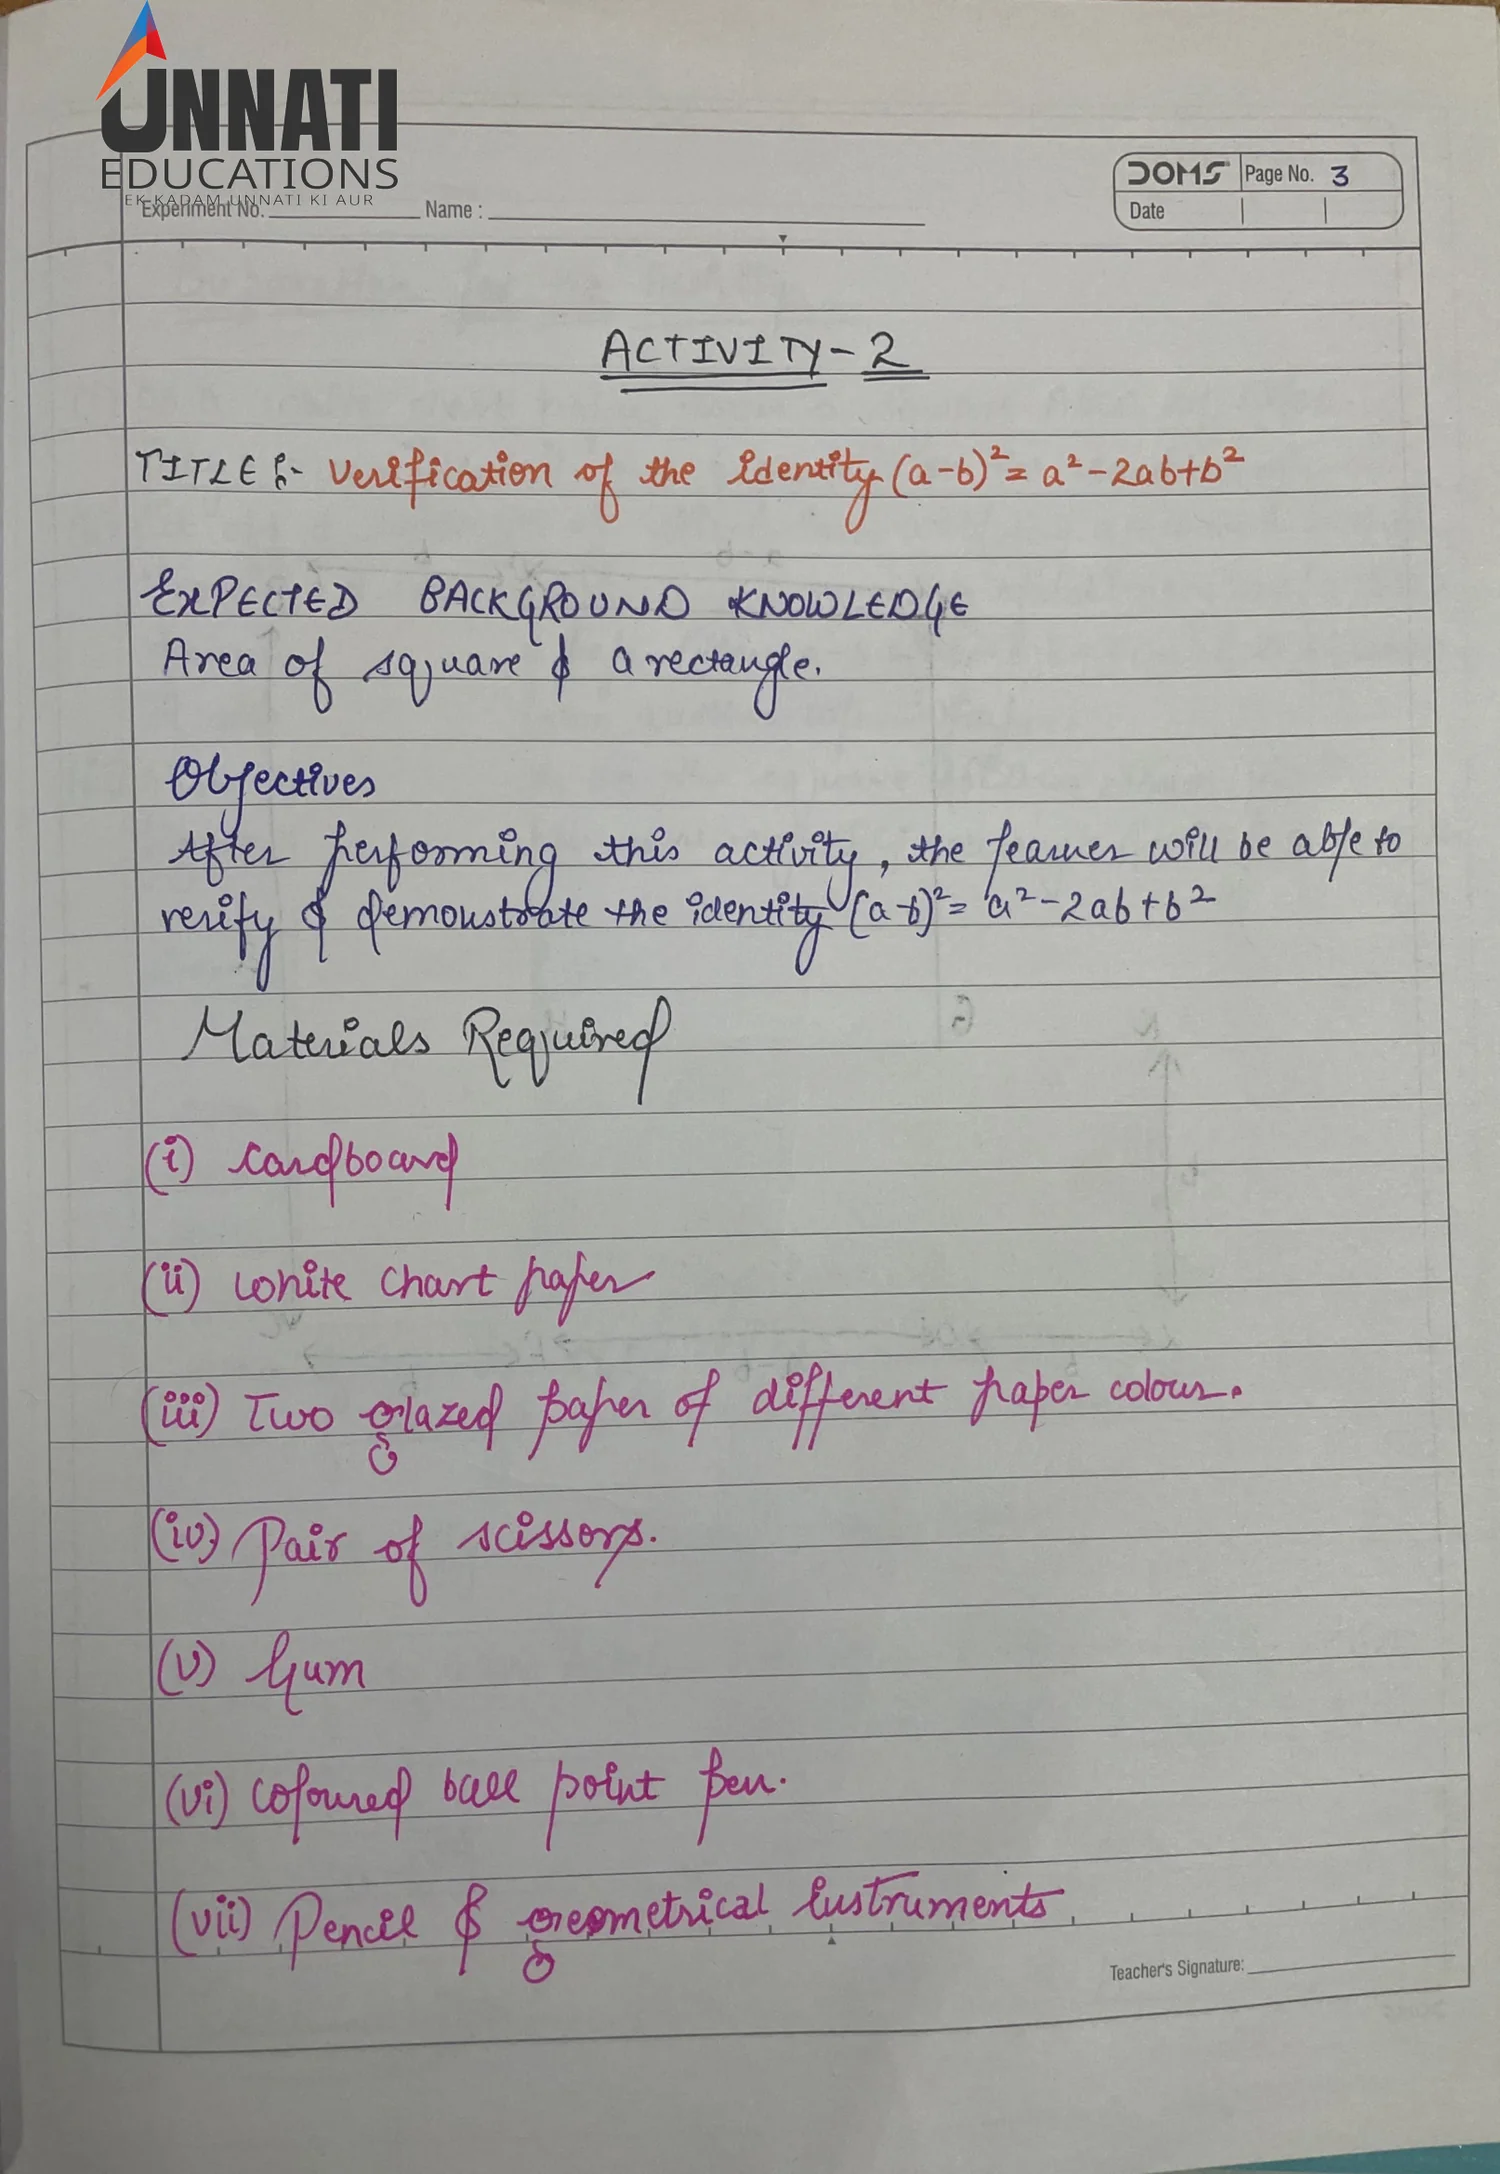 UNNATI
EDUCATIONS
EK KADAM UNNATI KI AUR
DOMS Page No. 3
Experiment No. Name :
Date
ACTIVITY-2
TITLE:- Verification of the identity (a-b)²= a²-2ab+b²
EXPECTED BACKGROUND KNOWLEDGE
Area of square & a rectangle.
Objectives
After performing this activity, the learner will be able to
verify & demonstrate the identity (a-b)²= a²-2ab+b²
Materials Required
(i) Cardboard
(ii) White Chart paper
(iii) Two Glazed paper of different paper colour.
(iv) Pair of scissors.
(v) Gum
(vi) Coloured ball point pen.
(vii) Pencil & Geometrical instruments
Teacher's Signature: